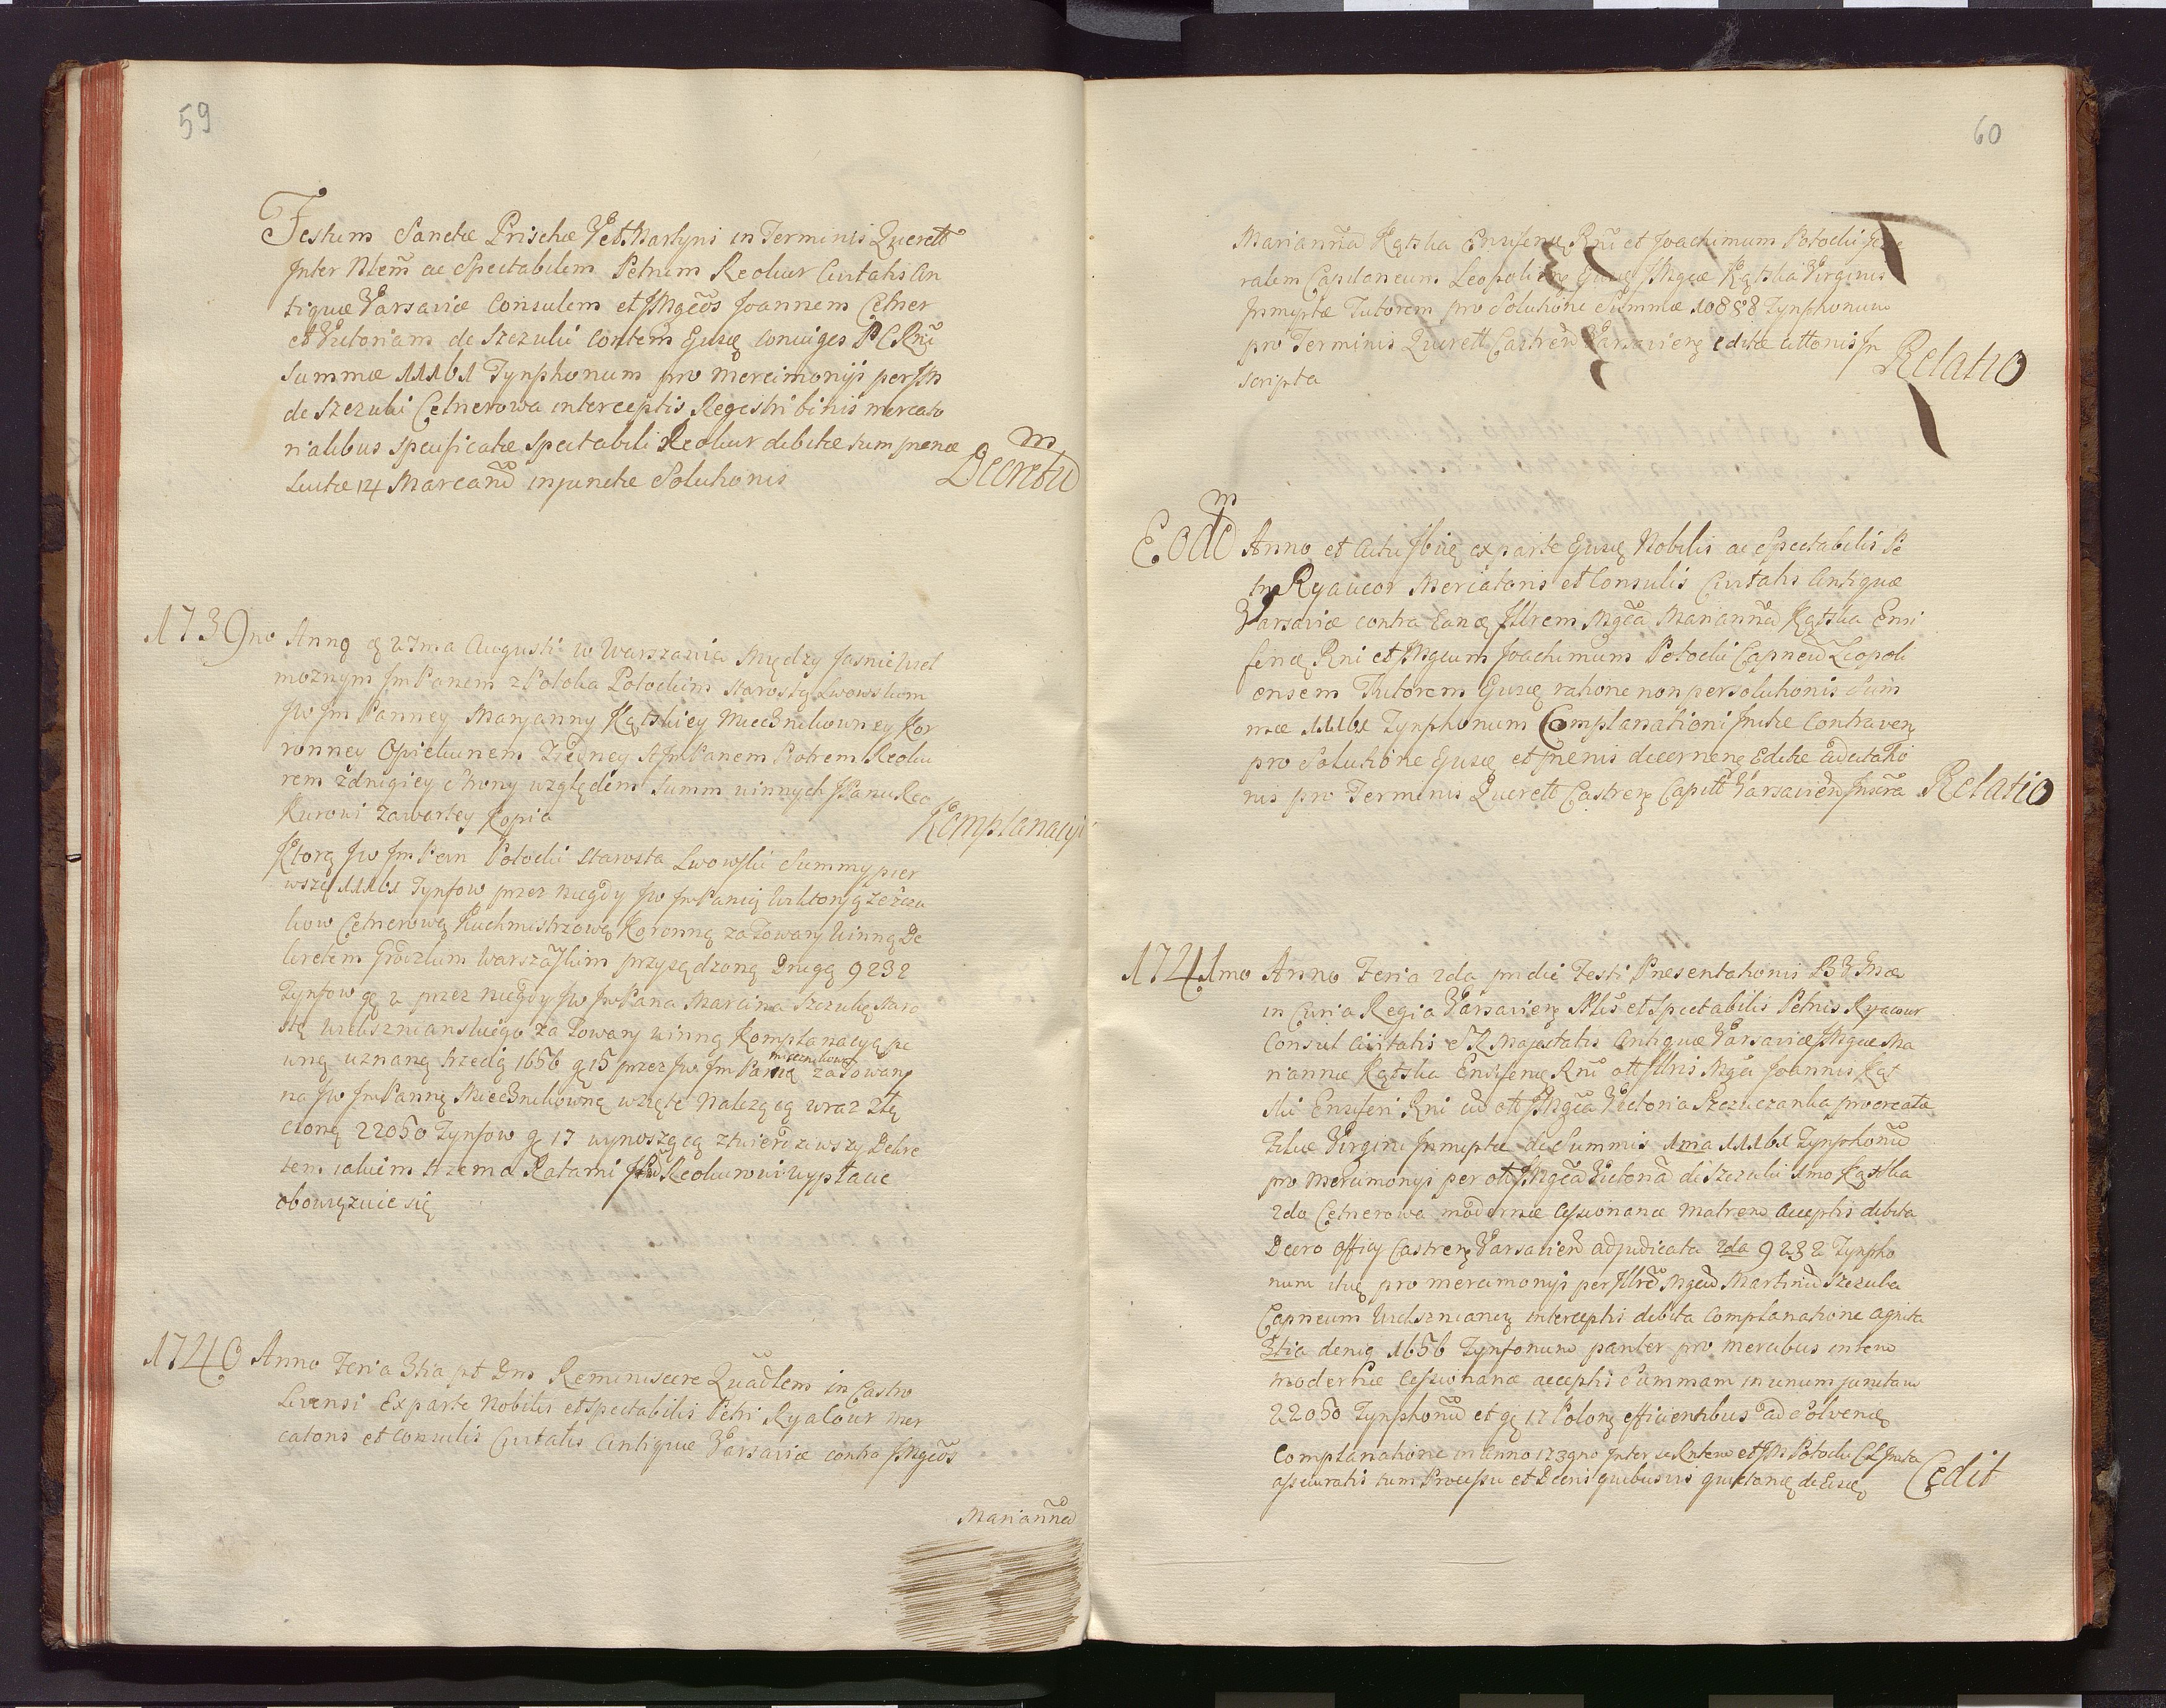 59
Festum Sanctæ Prischæ V et Martyris in Terminis Querell
Inter Nblem ac Spectabilem Petrum Reokur Civitatis An
tiquæ Varsaviæ Consulem et JMgcos Joannem Cetner
et Victoriam de Szczuki Contem Gusæ coniuges P C Rni
Summæ 11161 Tynphonum pro mercimonijs per JM
de Szczuki Cetnerowa interceptis Regestri binis mercato
rialibus specificatæ Spectabili Reokur debitæ sum pœnæ
Luitæ 14 Marcarū injunctæ Solutionis
Decretū
1739no Anno 27ma Augusti w Warszawie Między Jasnie Wiel
możnym Jm Panem z Potoka Potockim Starostą Lwowskim
JW Jm Panney Maryanny Kątskiey Miecznikowney Kor
ronney Opiekunem Zjedney A JmPanem Piotrem Reoku
rem zdrugiey strony względem Summ winnych JPanu Reo
Kurowi zawartey Kopia
Komplanacyi
Ktorą JW Jm Pan Potocki Starosta Lwowski Summy pier
wszą 11161 Tynfow przez niegdy JW JmPanią Wiktoryą ze Szczu
kow Cetnerową Kuchmistrzową Koronną za Towary winną De
kretem Grodzkim Warszaskim przysądzoną Drugą 9232
Tynfow gę 2 przez niegdy JW JmPana Marcina Szczukę Staro
stę Wielsznianskiego za Towary winną Komplanacyą pe
wną uznaną trzecią 1656 g 15 przez JW Jm Panią miecznikową za Towary
na JW JmPannę Miecznikownę wzięte należącą wraz złą
czoną 22050 Tynfow g 17 wynoszącą ztwierdziwszy Dekre
tem takim trzema Ratami JPanu Reokurowi wypłacic
obowięzuie się
1740 Anno Feria 3tia pt Dnm Reminiscere Quadlem in Castro
Livensi Exparte Nobilis et Spectabilis Petri Ryalour Mer
catoris et Consulis Civitatis Antiquæ Varsaviæ contra JMgcos
Mariannā
60
Mariannā Kątska Ensiferię Rni et Joachimum Potocki Gene
ralem Capitaneum Leopolienę Gusę JMgcæ Kątska Virginis
Innuptæ Tutorem pro Solutione Summæ 10888 Tynphonum
pro Terminis Querell Castren Varsavienę editæ cittonis In
scripta
Relatio
Eodē Anno et Actu Ibię ex parte Gusę Nobilis ac Spectabilis Pe
tri Ryaucor Mercatoris et Consulis Civitatis Antiquæ
Varsaviæ contra Eanę Illrem Mgcā Mariannā Kątska Ensi
ferię Rni et JMgcum Joachimum Potocki Capneū Leopoli
ensem Tutorem Gusę ratione non persolutionis Sum
mæ 11161 Tynphonum Complanationi Initæ Contravenę
pro Solutione Gusę et pœnis decernenę Editæ adcitatio
nis pro Terminis Querell Castrenę Capitt Varsavien Inscra
Relatio
1741mo Anno Feria 2da pridie Festi Præsentationis B V Mæ
in Curia Regia Varsavienę Nblis et Spectabilis Petrus Ryacour
Consul Civitatis S R Majestatis Antiquæ Varsaviæ JMgcæ Ma
riannæ Kątska Ensiferię Rni olt Illris Mgci Joannis Kąt
ski Ensiferi Rni cū olt JMgca Victoria Szczuczanka procreatæ
Filiæ Virgini Innuptæ de Summis 1ma 11161 Tynphonū
pro mercimonijs per olt JMgcā Victoriā de Szczuki 1mo Kątska
2do Cetnerowa modernæ Cessionariæ Matrem acceptis debita
Decro Officij Castrenę Varsavien adjudicata 2da 9232 Tynpho
num ituę pro mercimonijs per Illrē Mgcū Martinū Szczuka
Capneum Wielsznianę interceptis debita Complanatione agnita
3tia denię 1656 Tynfonum pariter pro mercibus interū
moderniæ Cessionariæ acceptis Summam in unum junctam
22050 Tynphonū et gę 17 Polonę efficientibus ad Solvenę
Complanatione in Anno 1739no Inter se Rntem et JM Potocki C L Inita
assecuratis tum Processu et Decris quibusvis quietanę de Eisdę
Cedit